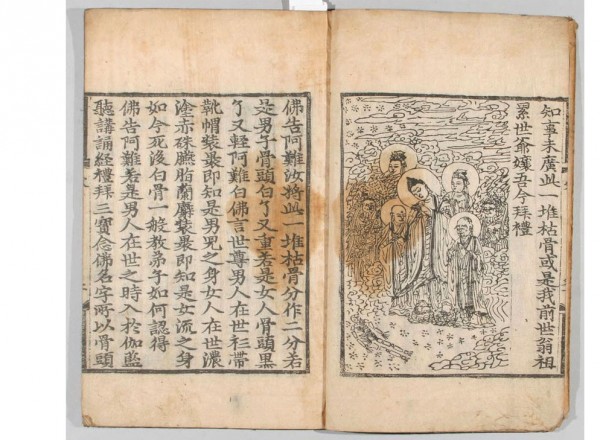 知事未廣此一堆枯骨或是我前世翁祖
累世爺孃吾今拜禮
佛告阿難汝將此一堆枯骨分作二分若
是男子骨頭白了又重若是女人骨頭黒
了又輕阿難白佛言世尊男人在世衫帶
靴帽裝裹即知是男児之身女人在世濃
塗赤硃臙脂蘭麝裝裹即知是女流之身
如今死後白骨一般教弟子如何認得
佛告阿難若是男人在世之時入於伽藍
聽講誦經禮拜三寶念佛名字所以骨頭